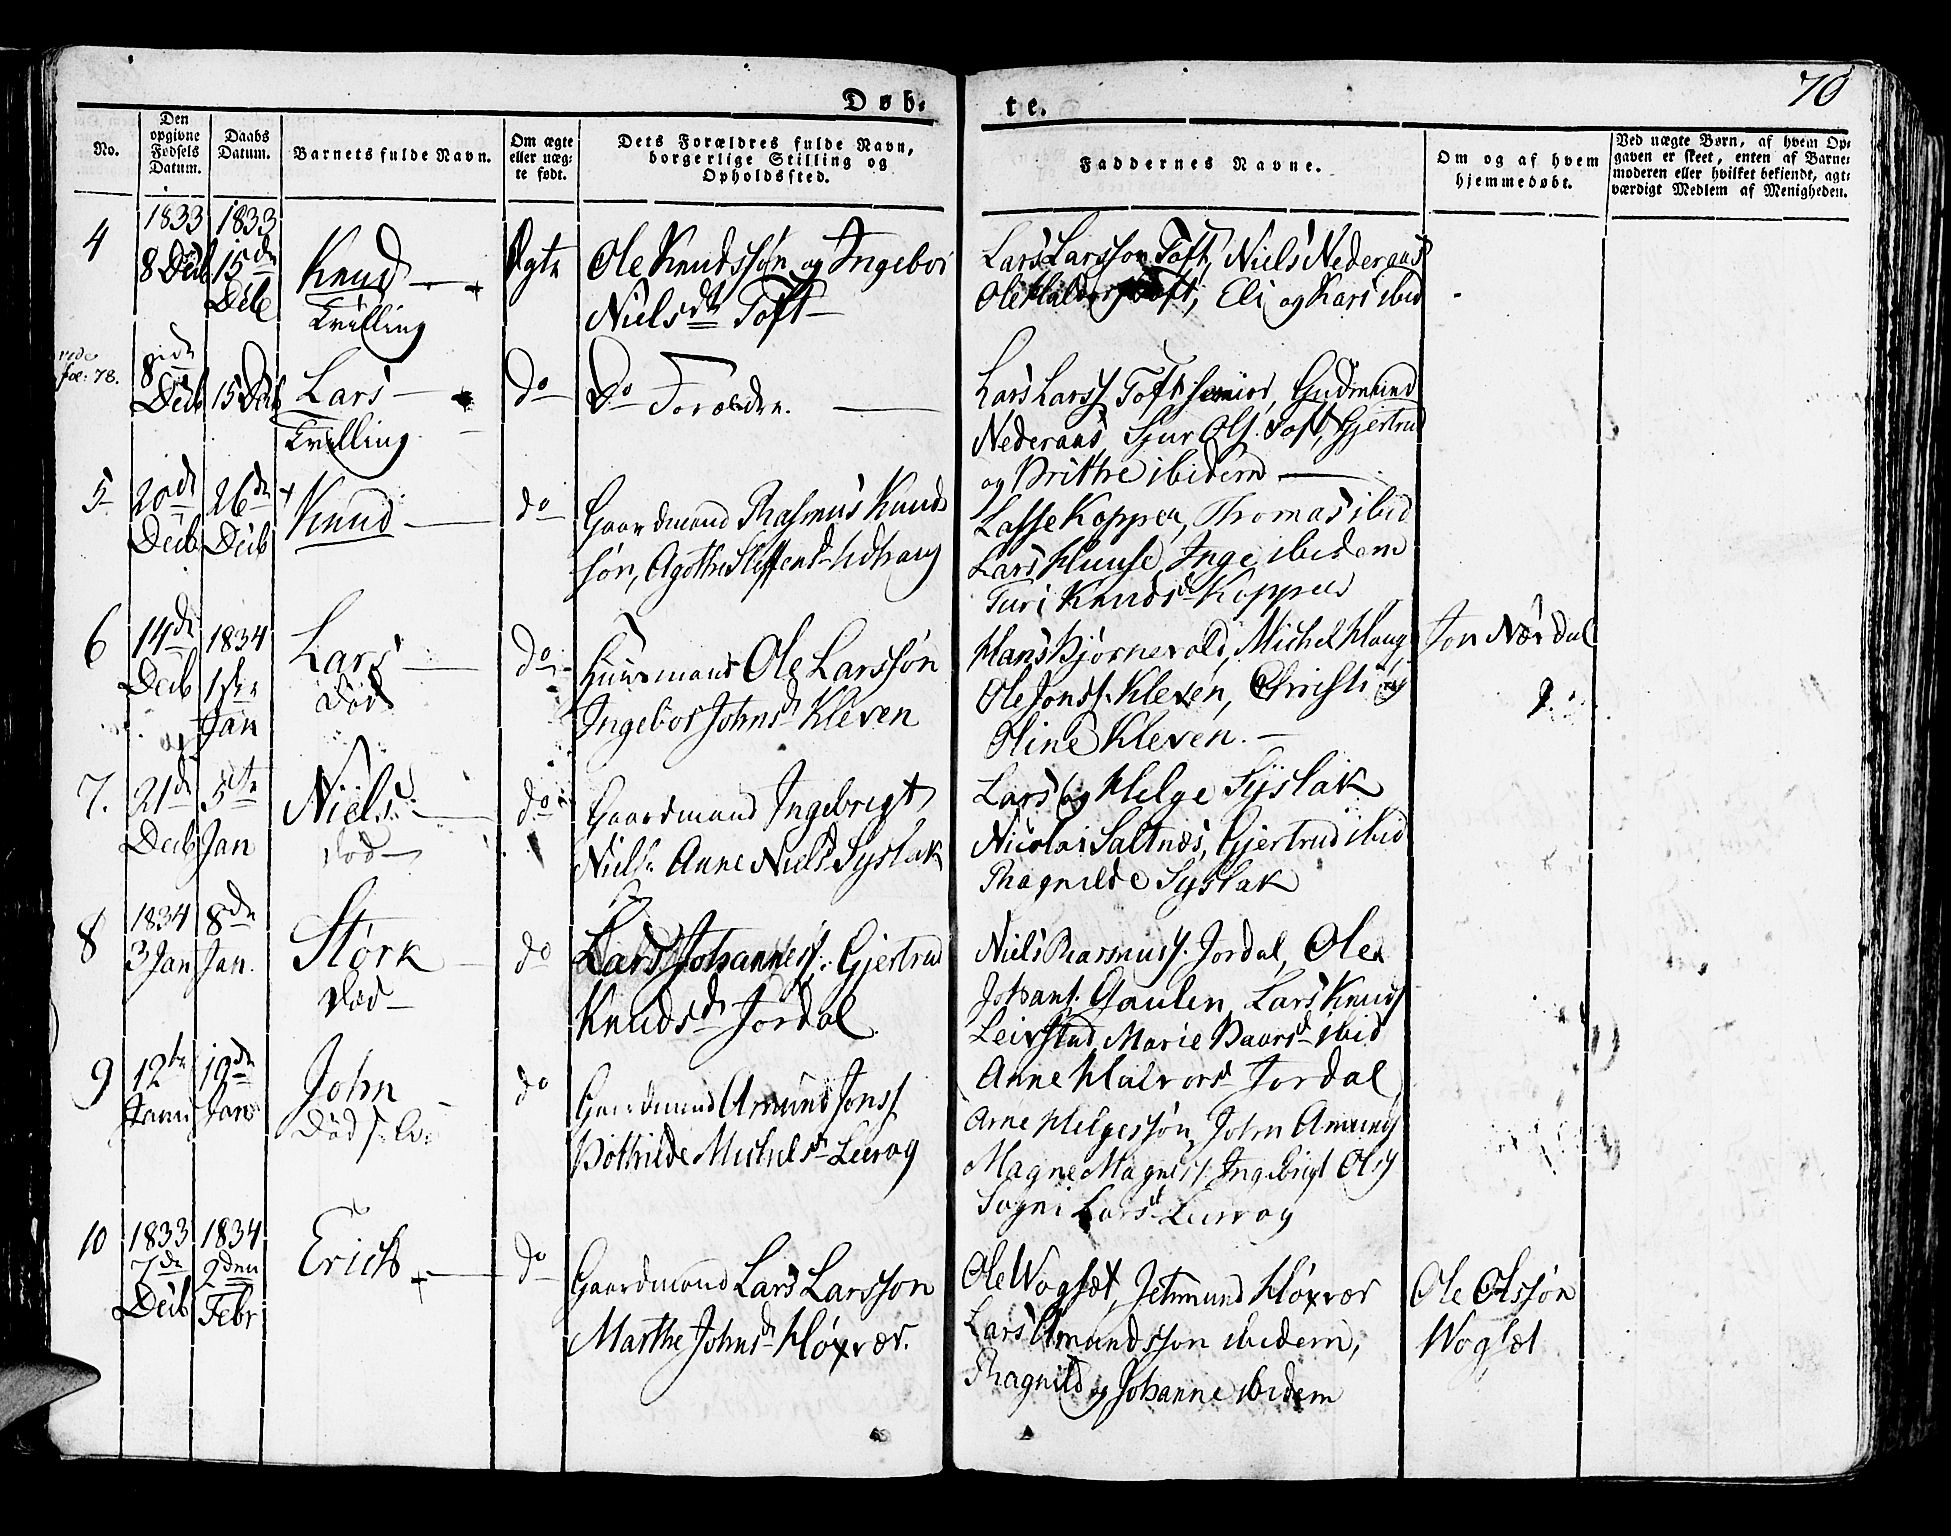 70
Døb-
te.
No.
Den opgivne Fødsels Datum.
Daabs Datum.
Barnets fulde Navn.
Om ægte eller uæg-te født.
Dets Forældres fulde Navn, borgerlige Stilling og Opholdssted.
Faddernes Navne.
Om og af hvem hjemmedøbt.
Ved uægte Børn, af hvem Op-gaven er skeet, enten af Barne-moderen eller hvilket bekiendt, agt-værdigt Medlem af Menigheden.
4
1833
8 Decb
1833
15de
Decb
Knud
Tvilling
Ægte
Ole Knudssøn og Ingebor
Nielsdtr Toft
Lars Larsson Toft, Niels Nederaas
Toft, Eli og Kari ibid
vide
fol: 78.
8de
Decb
15 Decb
Lars
Tvilling
do
Do Forældre.
Lars Larss Toft Senior, Gudmund
Nederaas Sjur Ols. Toft, Gjertrud
og Brithe ibidem
5
20de
Decb
26de
Decb
Knud
do
Gaardmand Rasmus Knud
søn, Agothe Steffensd
Lasse Koppen, Thomas ibid
Lars Huuse, Inge ibidem
Turi Knudsd Koppen
6
14de
Decb
1834
1ste
Jan
Lars
død
do
Huusmand Ole Larssøn
Ingebor Johnsd Kleven
Hans Bjørnevold, Michel Haug
Ole Jonss. Kleven, Christi og
Oline Kleven.
Jon Nærdal
7.
21de
Decb
5te
Jan
Niels
død
do
Gaardmand Ingebrigt
Nielss Anne Nielsd Syslak
Lars og Helge Syslak
Nicolai Saltnæs, Gjertrud ibid
Ragnilde Syslak
8
1834
3 Jan
8de
Jan.
Størk
død
do
Lars Johanness. Gjertrud
Knudsd Jordal
Niels Rasmuss. Jordal, Ole
Johans. Gaulen, Lars Knuds
Leirstad, Marie Baarsd ibid
Anne Halvorsd Jordal
9
12te
Janu
19de
Jan
John
død
do
Gaardmand Amund Jonss
Bothilde Michelsd Leerog
Arne Helgessøn, John Amunds
Magne Magness. Ingebrigt Ols
Sogni Larsd Leerog
10
1833
7de
Decb
1834
2den
Febr
Erich
do
Gaardmand Lars Larsson
Marthe Johnsd Høxvær.
Ole Wogsæt, Jetmund Høxvær
Lars Amundsson ibidem,
Ragnild og Johanne ibidem
Ole Olssøn
Wogsæt